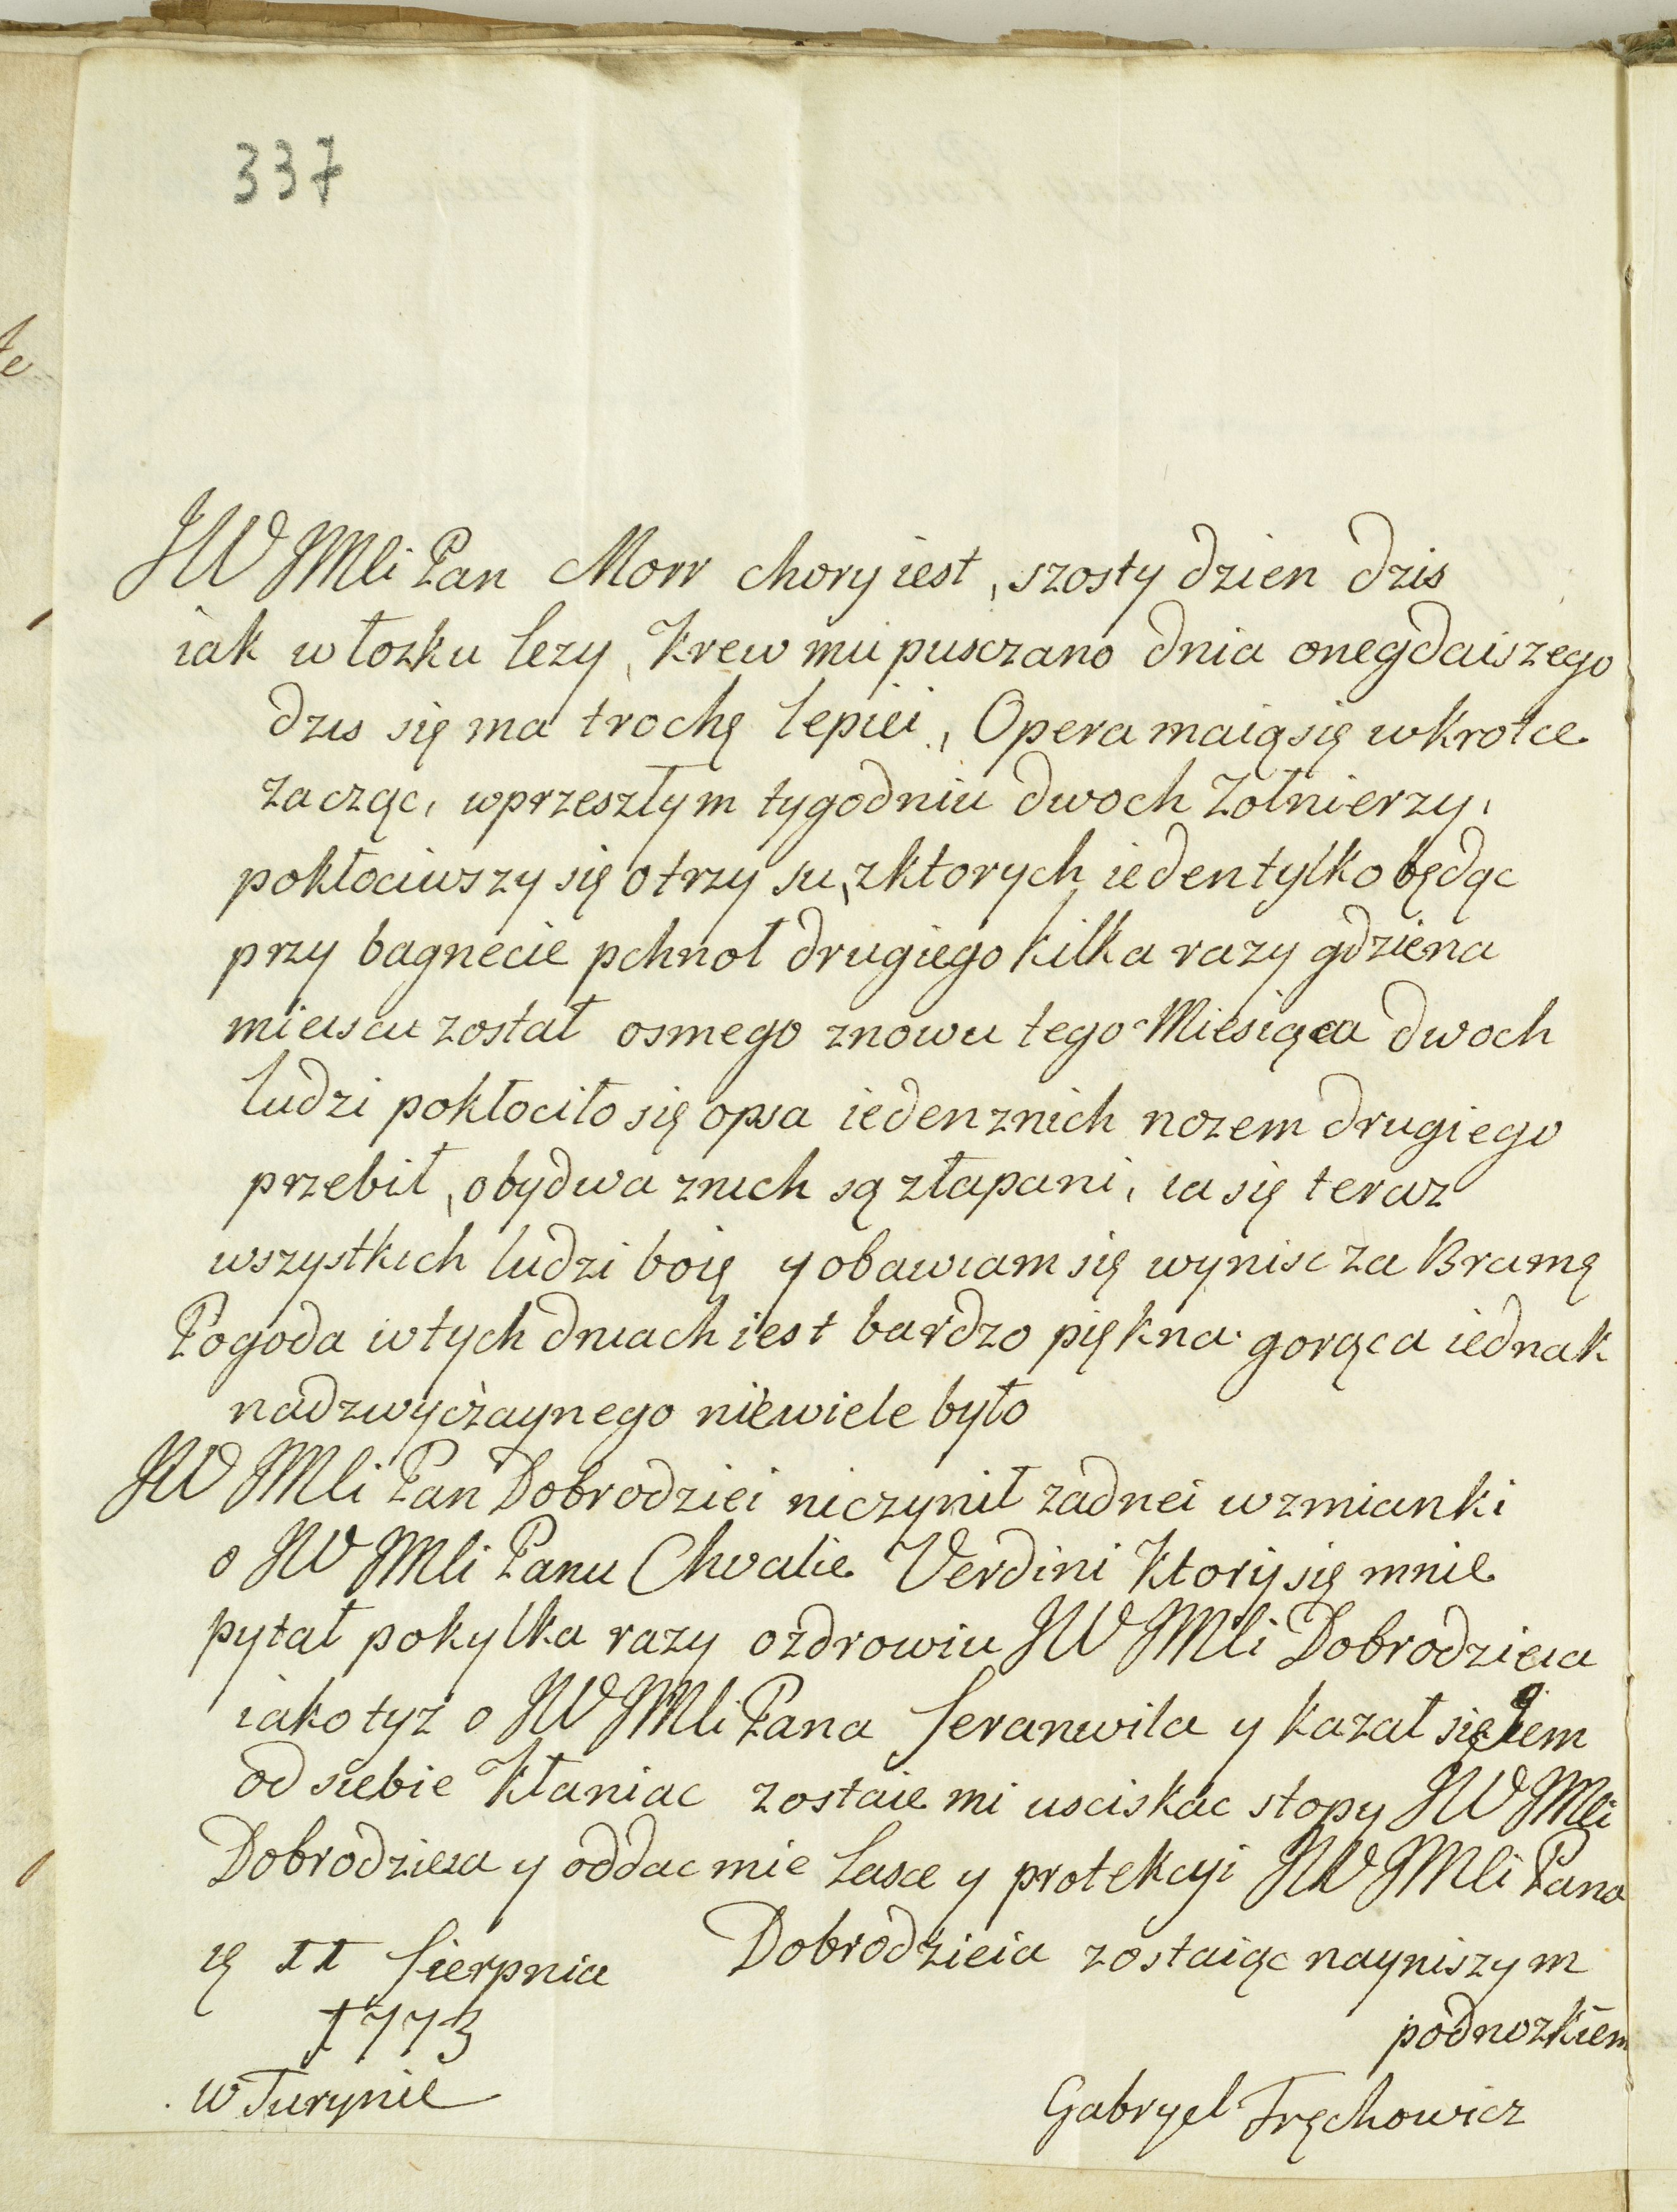 337
JW JMli Pan Morr chory iest, szosty dzien dzis
iak w łozku lezy, krew mu pusczano dnia onegdaiszego
dzis się ma trochę lepiei, Opera maią się wkrotce
zacząc, wprzeszłym tygodniu dwoch Zołnierzy,
pokłociwszy się o trzy su, zktorych ieden tylko będąc
przy bagnecie pchnoł drugiego kilka razy gdziena
mieiscu został osmego znowu tego Miesiąca dwoch
ludzi pokłociło się opsa ieden znich nozem drugiego
przebił, obydwa znich są złapani, ia się teraz
wszystkich ludzi boię y obawiam się wynisc za Bramę
Pogoda w tych dniach iest bardzo piękna gorąca iednak
nadzwyczaynego niewiele było
JW JMli Pan Dobrodziei nic zynił zadnei wzmianki
o JW JMli Panu Chwalie Verdini ktory się mnie
pytał pokylka razy ozdrowiu JW JMli Dobrodzieia
iako tyz o JW JMli Pana Seranwila y kazał się Jem
od siebie kłaniac zostaie mi usciskac stopy JW JMli
Dobrodzieia y oddac mie Lasce y protekcyi JW JMli Pana
Dobrodzieia zostaiąc nayniszym
podnozkiem
11 Sierpnia
1773
w Turynie
Gabryel Tręchowicz